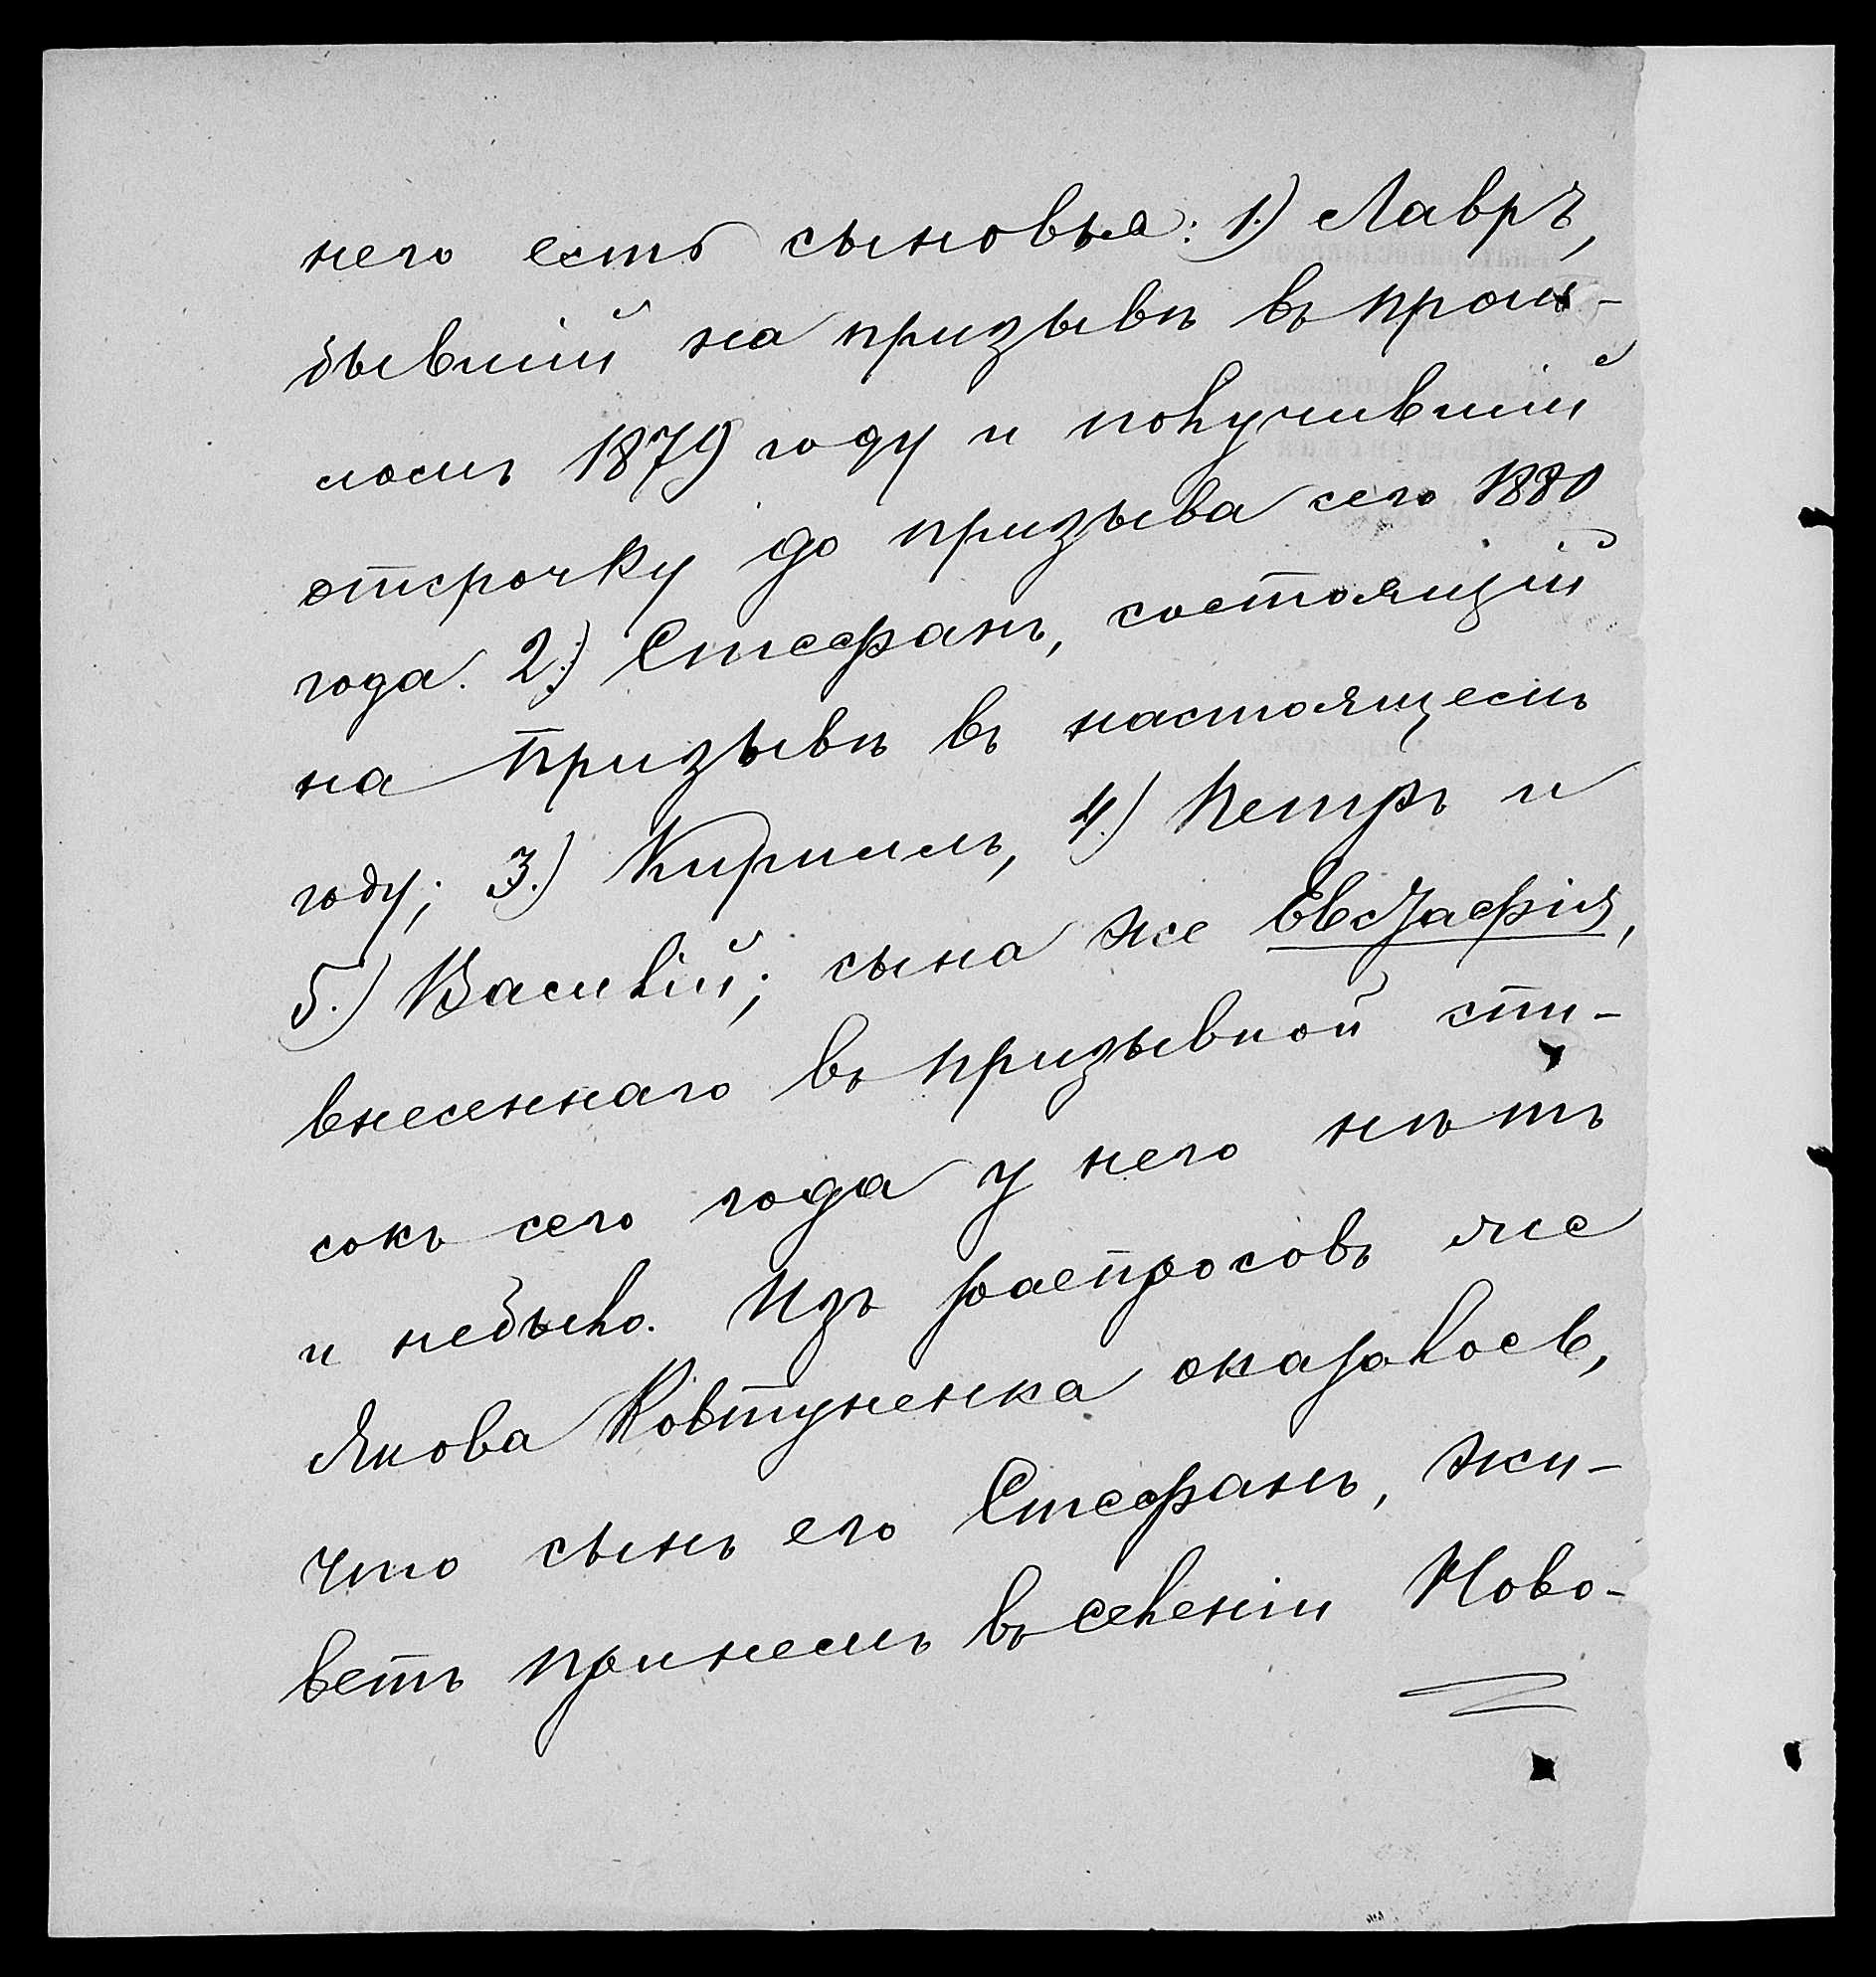 него есть сыновья: 1.) Лавръ,
бывшій на призывѣ въ прош-
ломъ 1879 году и получившій
отсрочку до призыва сего 1880
года. 2.) Стефанъ, состоящій
на призывѣ въ настоящемъ
году; 3.) Кириллъ, 4.) Петръ и
5.) Василій; сына же Евстафія,
внесеннаго въ призывной спи-
сокъ сего года у него нѣтъ
и небыло. Изъ распросовъ же
Якова Ковтуненка оказалось,
что сынъ его Стефанъ, жи-
ветъ принемъ въ селеніи Ново-